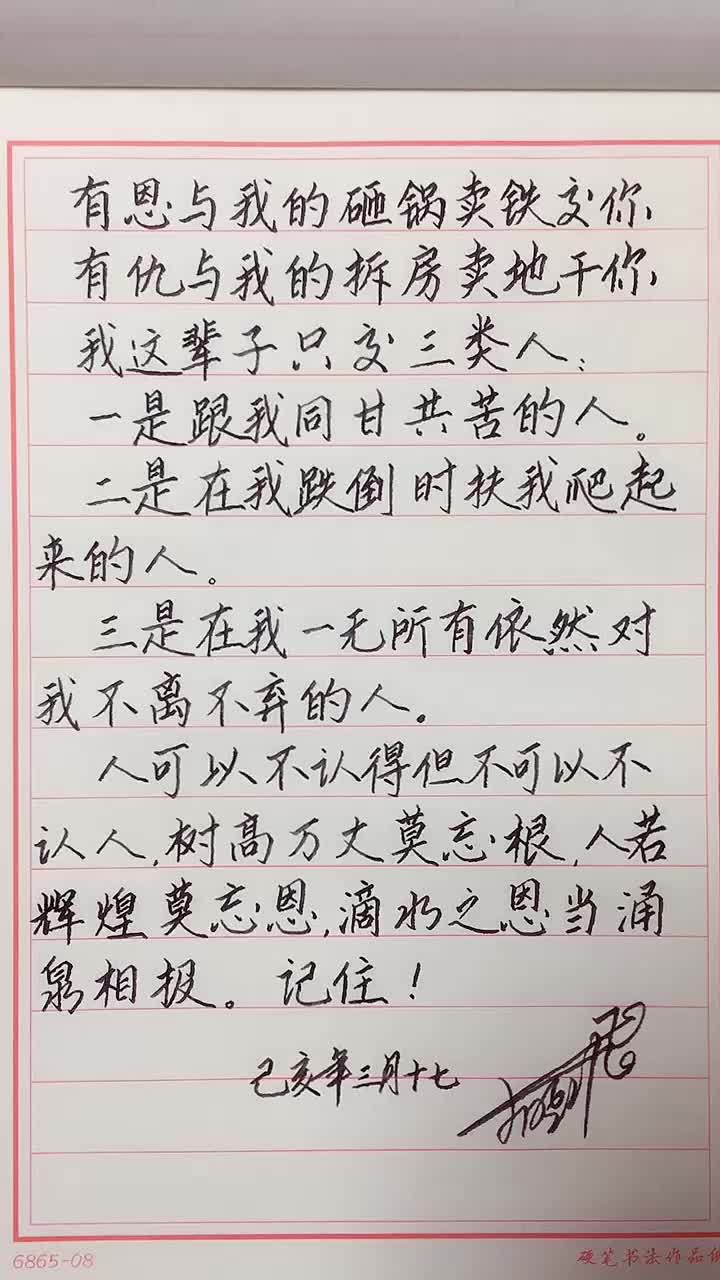 有恩与我的砸锅卖铁交你、
有仇与我的拆房卖地干你、
我这辈子只交三类人：
一是跟我同甘共苦的人。
二是在我跌倒时扶我爬起
来的人。
三是在我一无所有依然对
我不离不弃的人。
人可以不认得但不可以不
认人,树高万丈莫忘根,人若
辉煌莫忘恩,滴水之恩当涌
泉相报。记住！
己亥年三月十七
6865-08
硬笔书法作品